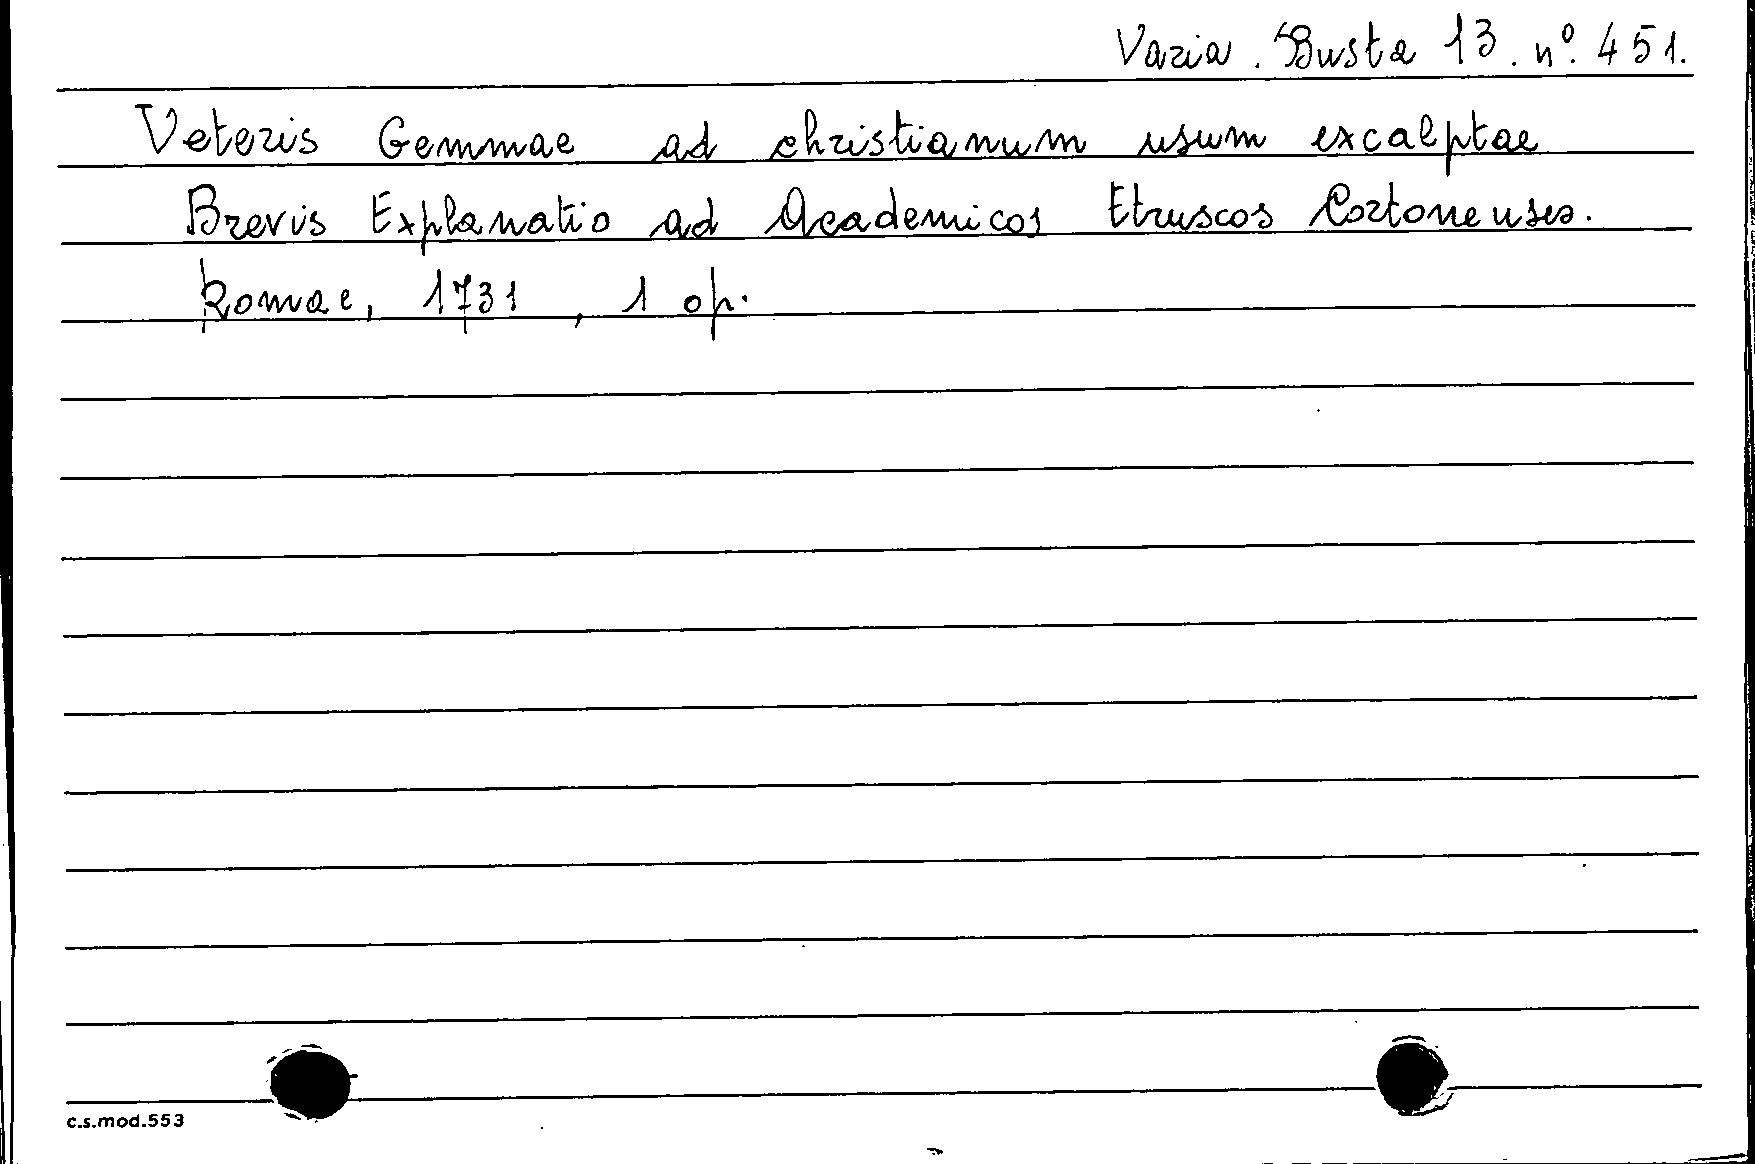 Varia. Busta 13. nº. 451.
Veteris Gemmae ad christianum usum excalptae
Brevis Explanatio ad Academicos Etruscos Cortonenses.
Romae, 1731, 1 op.
c.s.mod.553